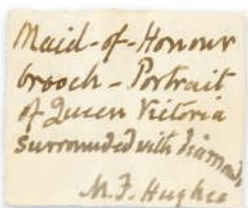 Maid-of-Honour
brooch - Portrait
of Queen Victoria
surrounded with diamonds
M. F. Hughes